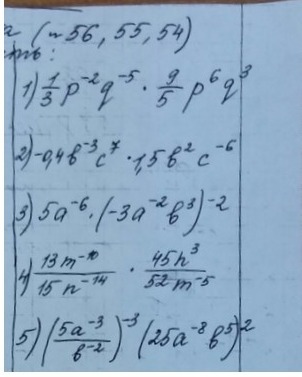 а (~56, 55, 54)
ть:
1) 1/3 p⁻²q⁻⁵ · 9/5 p⁶q³
2) -0,4в⁻³с⁷ · 1,5в²с⁻⁶
3) 5a⁻⁶ · (-3a⁻²в³)⁻²
4) 13m⁻¹⁰/15n⁻¹⁴ · 45n³/52m⁻⁵
5) (5a⁻³/в⁻²)⁻³ (25a⁻⁸в⁵)²